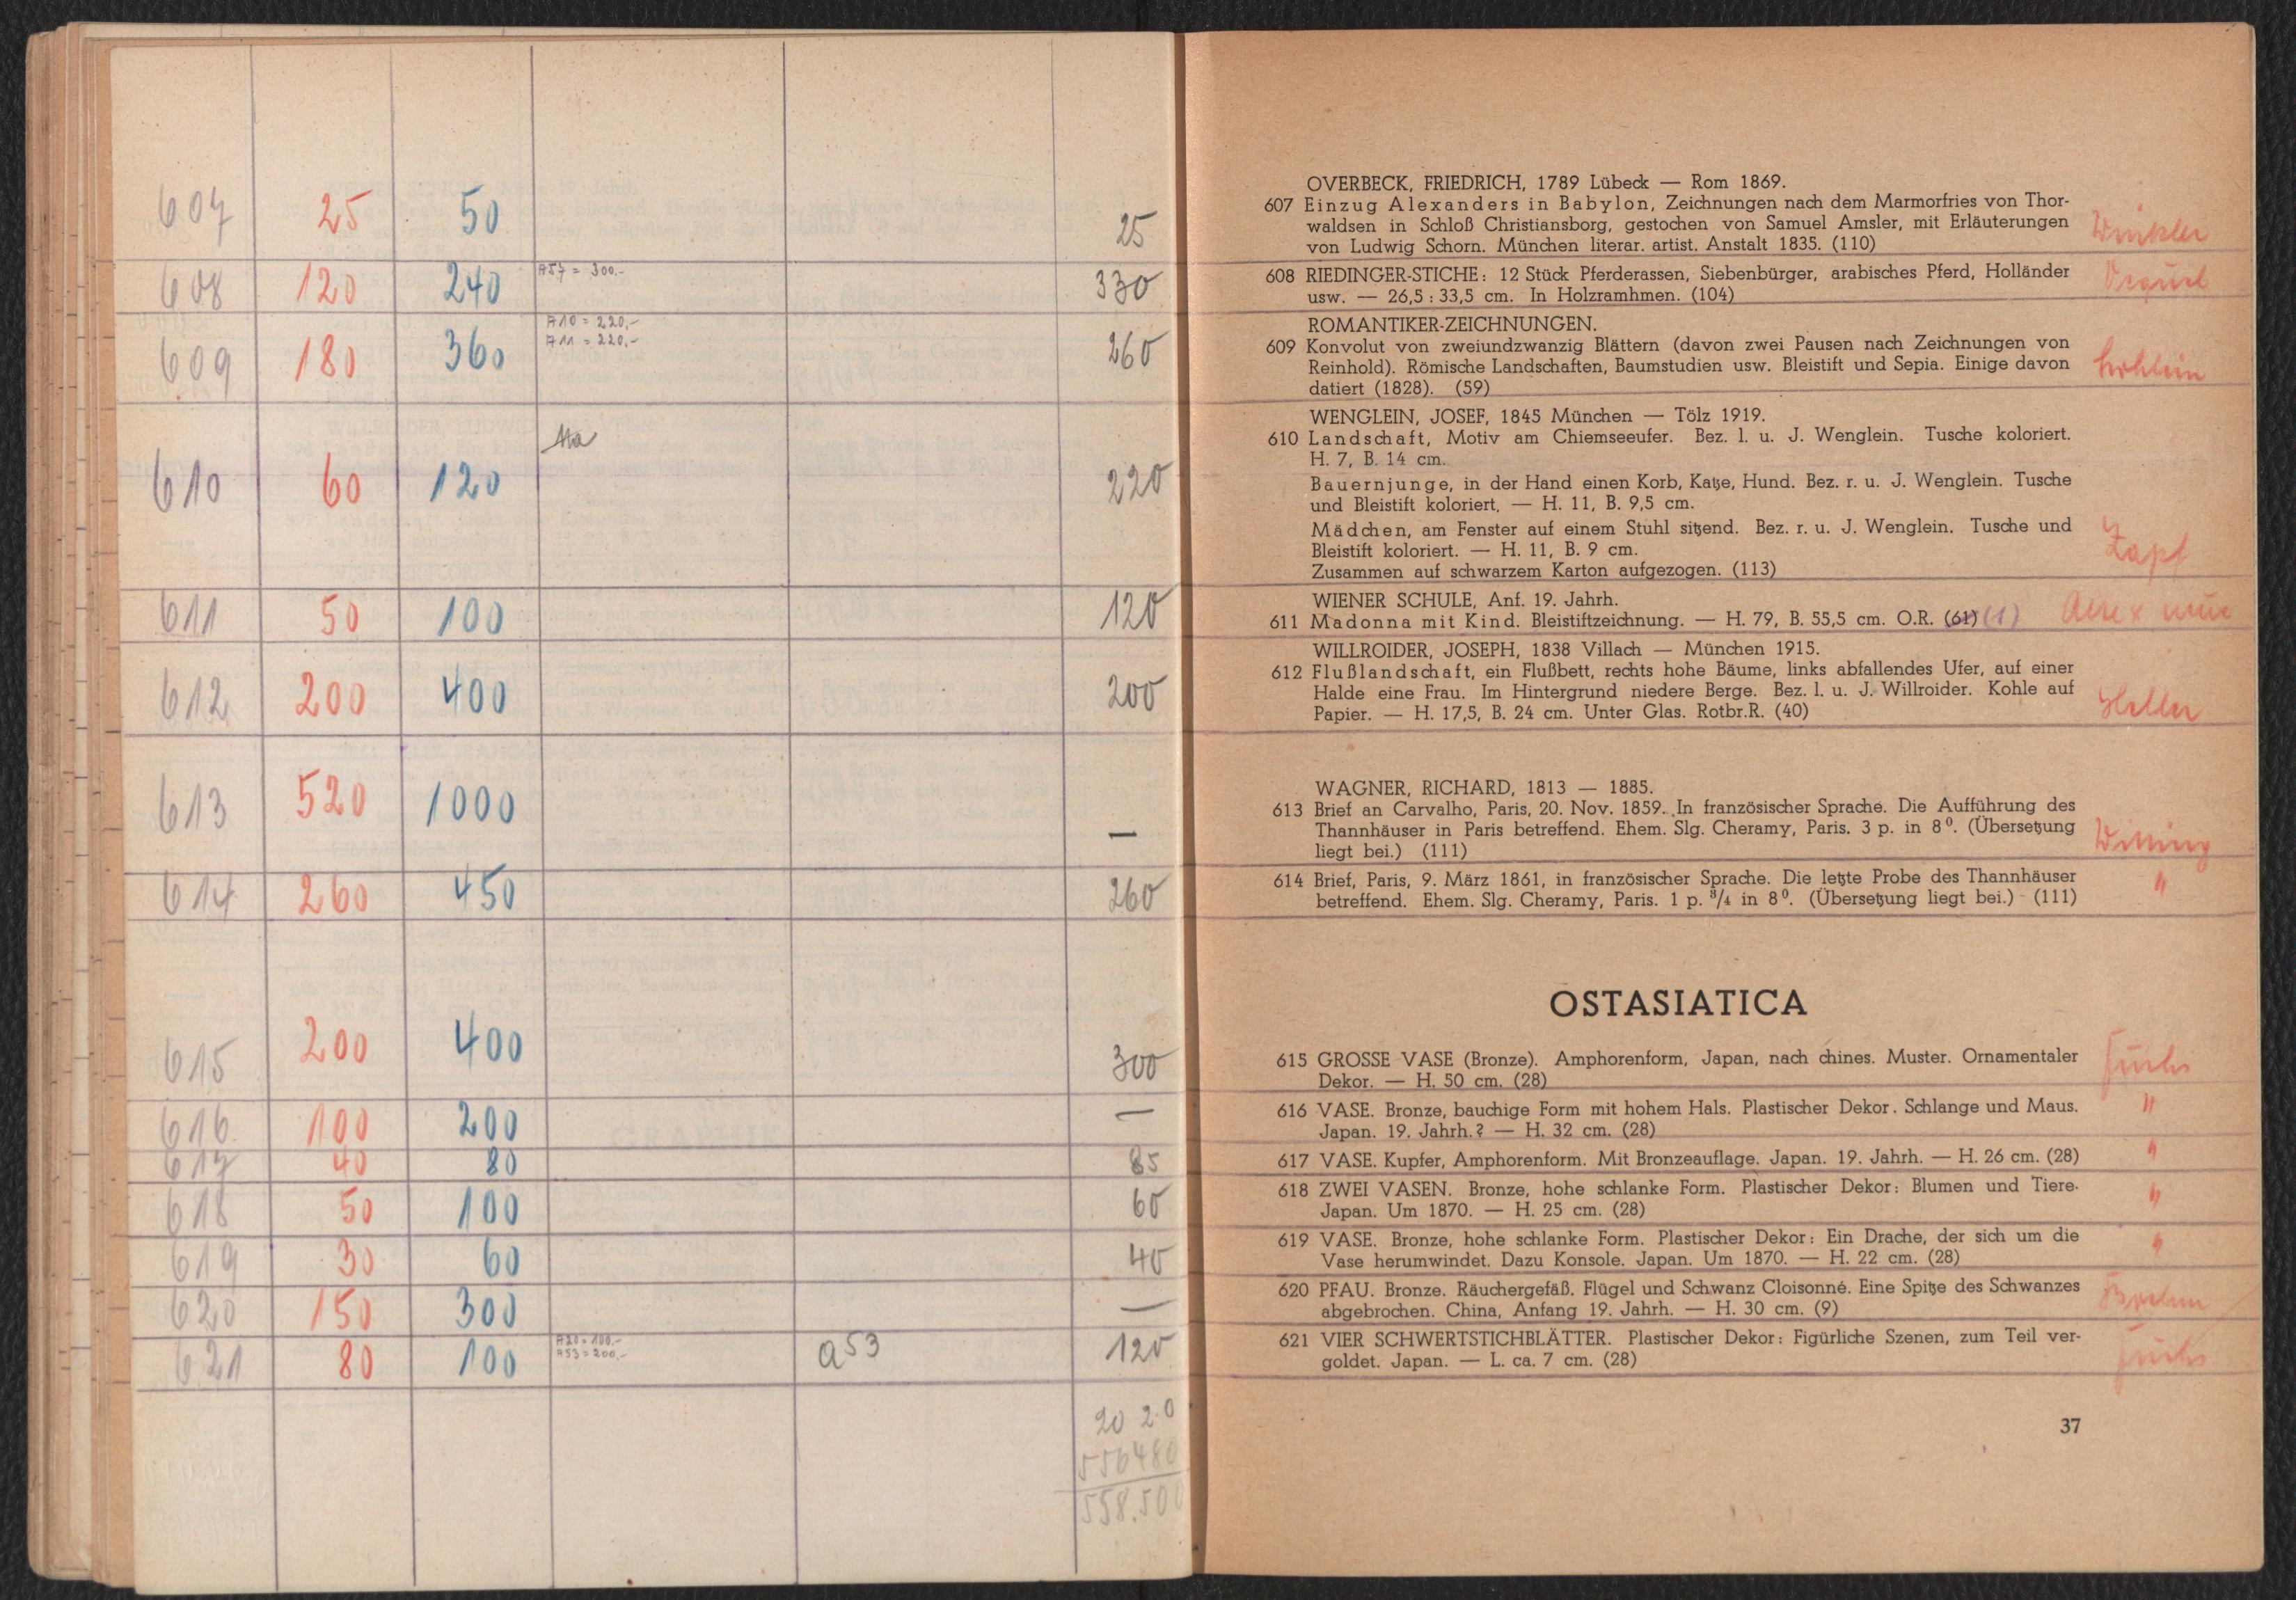 607 25 50 25
608 120 240 A57 = 300.- 330
A10 = 220,-
609 180 360 A11 = 220,- 260
610 60 120 220
611 50 100 120
612 200 400 200
613 520 1000 —
614 260 450 260
615 200 400 300
616 100 200 —
617 40 80 85
618 50 100 60
619 30 60 40
620 150 300 —
A20 = 100.-
621 80 100 A53 = 200.- a53 120
20 20
556480
558.500
OVERBECK, FRIEDRICH, 1789 Lübeck — Rom 1869.
607 Einzug Alexanders in Babylon, Zeichnungen nach dem Marmorfries von Thor-
waldsen in Schloß Christiansborg, gestochen von Samuel Amsler, mit Erläuterungen
von Ludwig Schorn. München literar. artist. Anstalt 1835. (110) Winkler
608 RIEDINGER-STICHE: 12 Stück Pferderassen, Siebenbürger, arabisches Pferd, Holländer
usw. — 26,5 : 33,5 cm. In Holzramhmen. (104)
ROMANTIKER-ZEICHNUNGEN.
609 Konvolut von zweiundzwanzig Blättern (davon zwei Pausen nach Zeichnungen von
Reinhold). Römische Landschaften, Baumstudien usw. Bleistift und Sepia. Einige davon
datiert (1828). (59)
WENGLEIN, JOSEF, 1845 München — Tölz 1919.
610 Landschaft, Motiv am Chiemseeufer. Bez. l. u. J. Wenglein. Tusche koloriert.
H. 7, B. 14 cm.
Bauernjunge, in der Hand einen Korb, Katze, Hund. Bez. r. u. J. Wenglein. Tusche
und Bleistift koloriert. — H. 11, B. 9,5 cm.
Mädchen, am Fenster auf einem Stuhl sitzend. Bez. r. u. J. Wenglein. Tusche und
Bleistift koloriert. — H. 11, B. 9 cm. Zapf
Zusammen auf schwarzem Karton aufgezogen. (113)
WIENER SCHULE, Anf. 19. Jahrh.
611 Madonna mit Kind. Bleistiftzeichnung. — H. 79, B. 55,5 cm. O.R. (61) (1)
WILLROIDER, JOSEPH, 1838 Villach — München 1915.
612 Flußlandschaft, ein Flußbett, rechts hohe Bäume, links abfallendes Ufer, auf einer
Halde eine Frau. Im Hintergrund niedere Berge. Bez. l. u. J. Willroider. Kohle auf
Papier. — H. 17,5, B. 24 cm. Unter Glas. Rotbr.R. (40) Heller
WAGNER, RICHARD, 1813 — 1885.
613 Brief an Carvalho, Paris, 20. Nov. 1859. In französischer Sprache. Die Aufführung des
Thannhäuser in Paris betreffend. Ehem. Slg. Cheramy, Paris. 3 p. in 8⁰. (Übersetzung
liegt bei.) (111)
614 Brief, Paris, 9. März 1861, in französischer Sprache. Die letzte Probe des Thannhäuser "
betreffend. Ehem. Slg. Cheramy, Paris. 1 p. ³/₄ in 8⁰. (Übersetzung liegt bei.) - (111)
OSTASIATICA
615 GROSSE VASE (Bronze). Amphorenform, Japan, nach chines. Muster. Ornamentaler Fuchs
Dekor. — H. 50 cm. (28)
616 VASE. Bronze, bauchige Form mit hohem Hals. Plastischer Dekor. Schlange und Maus. "
Japan. 19. Jahrh.? — H. 32 cm. (28)
617 VASE. Kupfer, Amphorenform. Mit Bronzeauflage. Japan. 19. Jahrh. — H. 26 cm. (28) "
618 ZWEI VASEN. Bronze, hohe schlanke Form. Plastischer Dekor: Blumen und Tiere. "
Japan. Um 1870. — H. 25 cm. (28)
619 VASE. Bronze, hohe schlanke Form. Plastischer Dekor: Ein Drache, der sich um die "
Vase herumwindet. Dazu Konsole. Japan. Um 1870. — H. 22 cm. (28)
620 PFAU. Bronze. Räuchergefäß. Flügel und Schwanz Cloisonné. Eine Spitze des Schwanzes
abgebrochen. China, Anfang 19. Jahrh. — H. 30 cm. (9)
621 VIER SCHWERTSTICHBLÄTTER. Plastischer Dekor: Figürliche Szenen, zum Teil ver-
goldet. Japan. — L. ca. 7 cm. (28) Fuchs
37